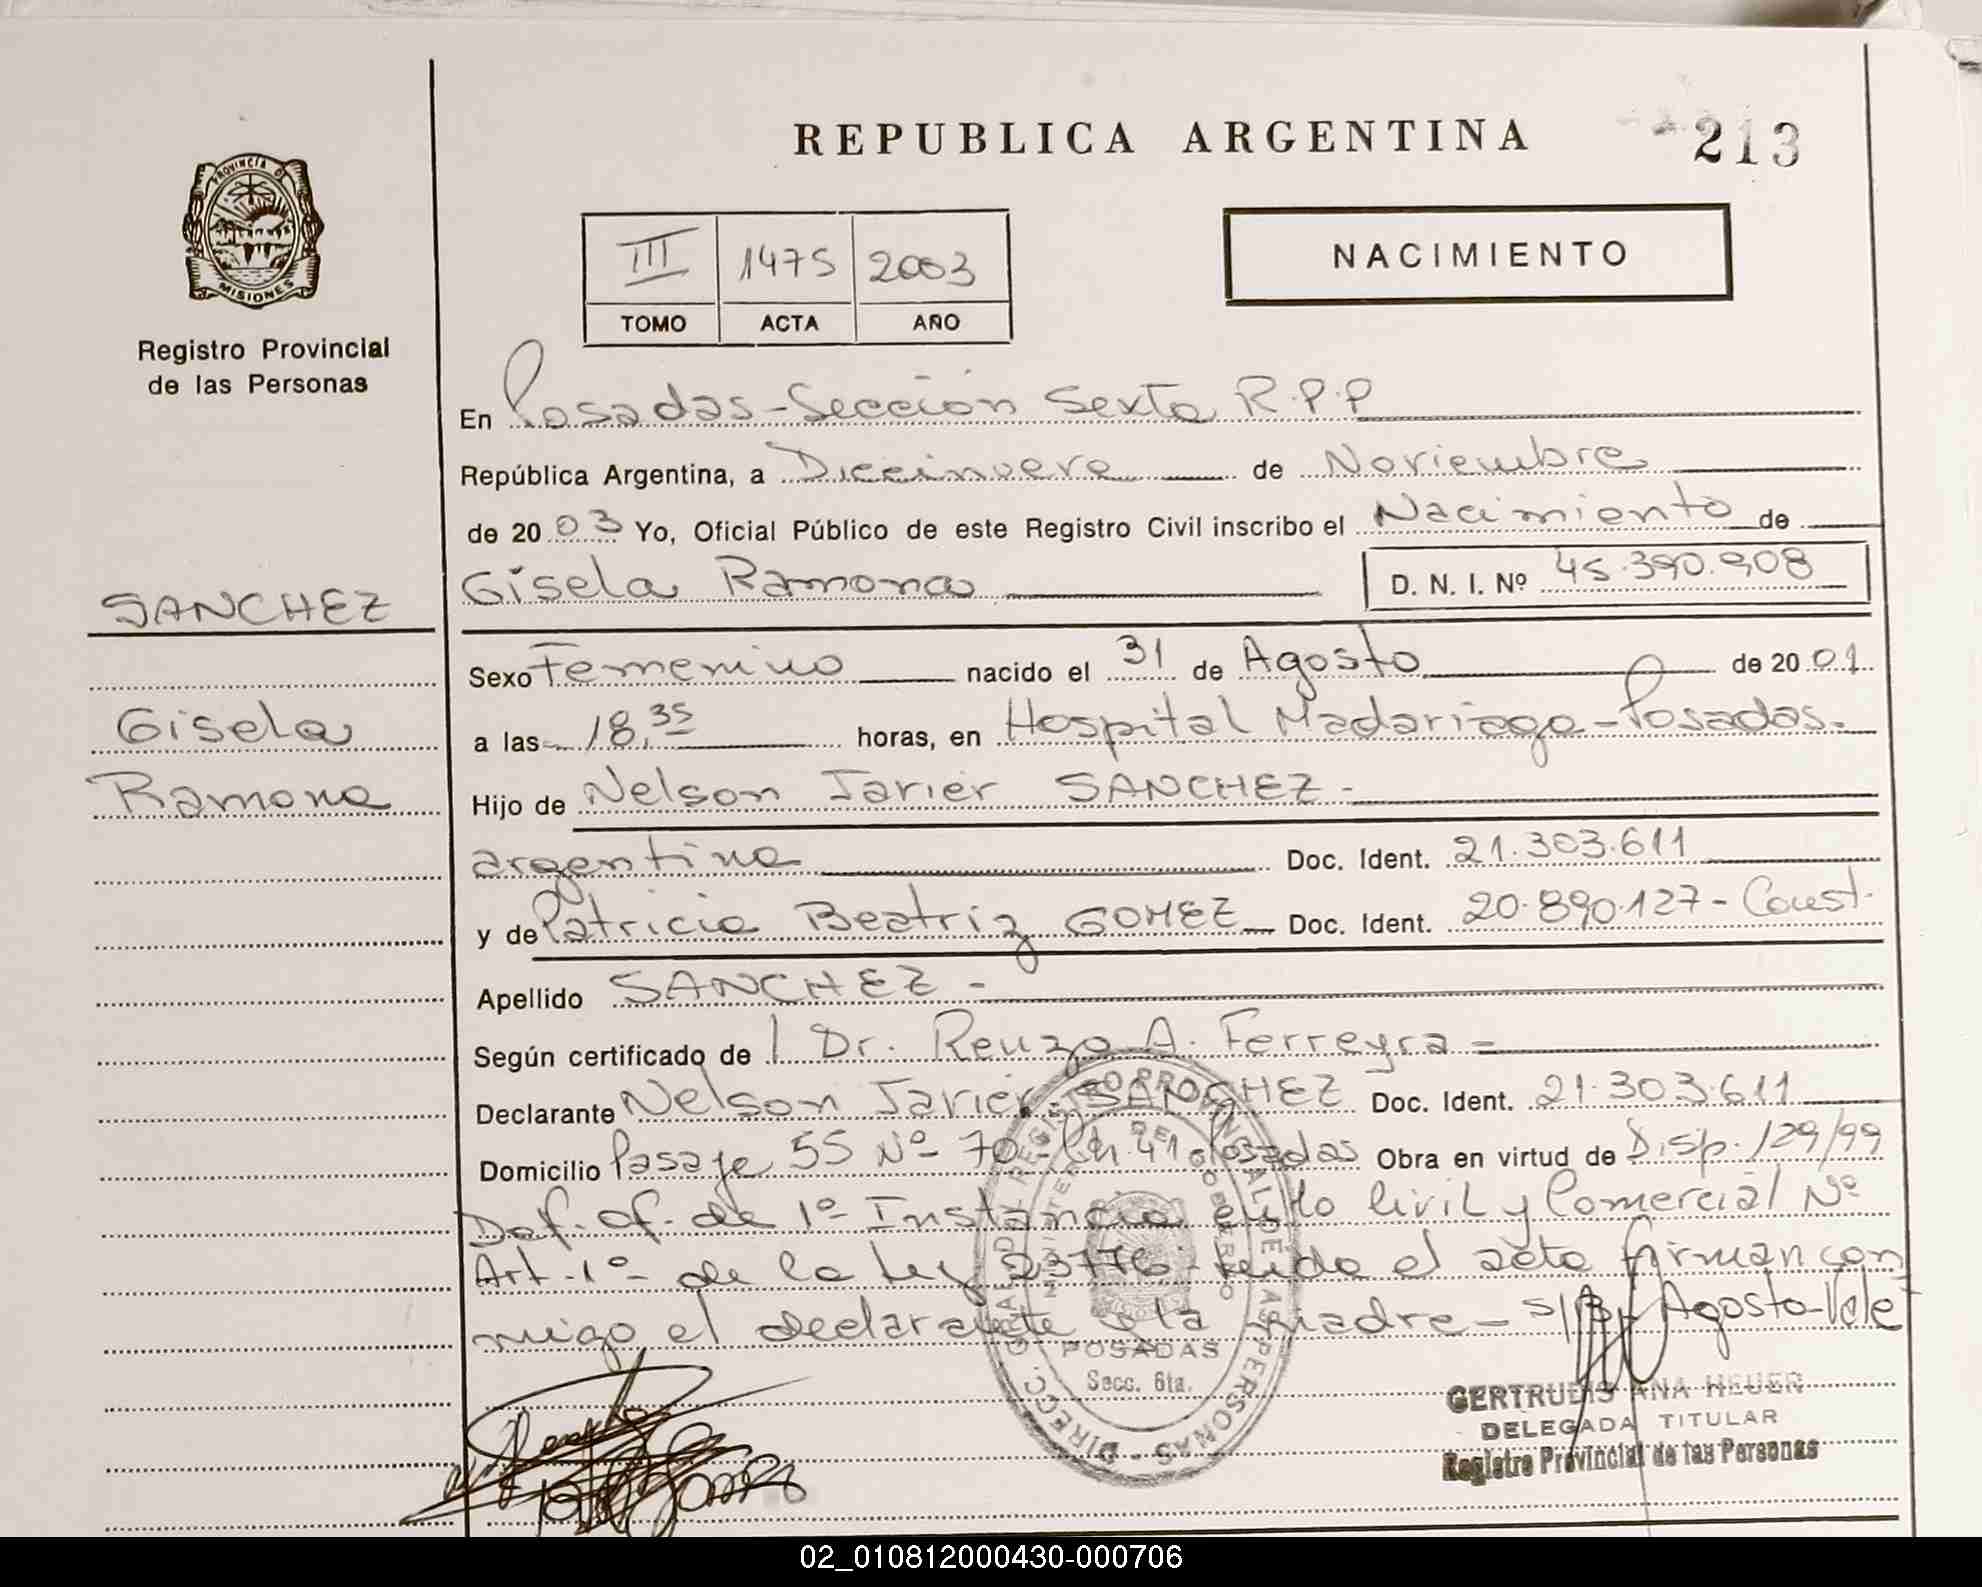 REPUBLICA ARGENTINA
213
PROVINCIA DE
MISIONES
Registro Provincial
de las Personas
III 1475 2003
TOMO ACTA AÑO
NACIMIENTO
En Posadas-Sección Sexta R.P.P
República Argentina, a Diecinueve de Noviembre
de 2003 Yo, Oficial Público de este Registro Civil inscribo el Nacimiento de
SANCHEZ
Gisela Ramona D. N. I. Nº 45.390.908
Sexo Femenino nacido el 31 de Agosto de 2001
Gisela
a las 18,35 horas, en Hospital Madariaga-Posadas-
Ramona
Hijo de Nelson Javier SANCHEZ-
argentina Doc. Ident. 21.303.611
y de Patricia Beatriz GOMEZ Doc. Ident. 20.890.127- Const.
Apellido SANCHEZ-
Según certificado de Dr. Renzo A. Ferreyra-
Declarante Nelson Javier SANCHEZ Doc. Ident. 21.303.611
Domicilio Pasaje 55 Nº 70-Ch. 41 Posadas Obra en virtud de Disp. 129/99
Def. of. de 1º Instancia en lo Civil y Comercial Nº
Art. 1º de la Ley 23776 leido el acta firman con
migo el declarante y la madre- S/B/ Agosto-Vale
POSADAS
Secc. 6ta.
GERTRUDIS ANA HEUER
DELEGADA TITULAR
Registro Provincial de las Personas
02_010812000430-000706